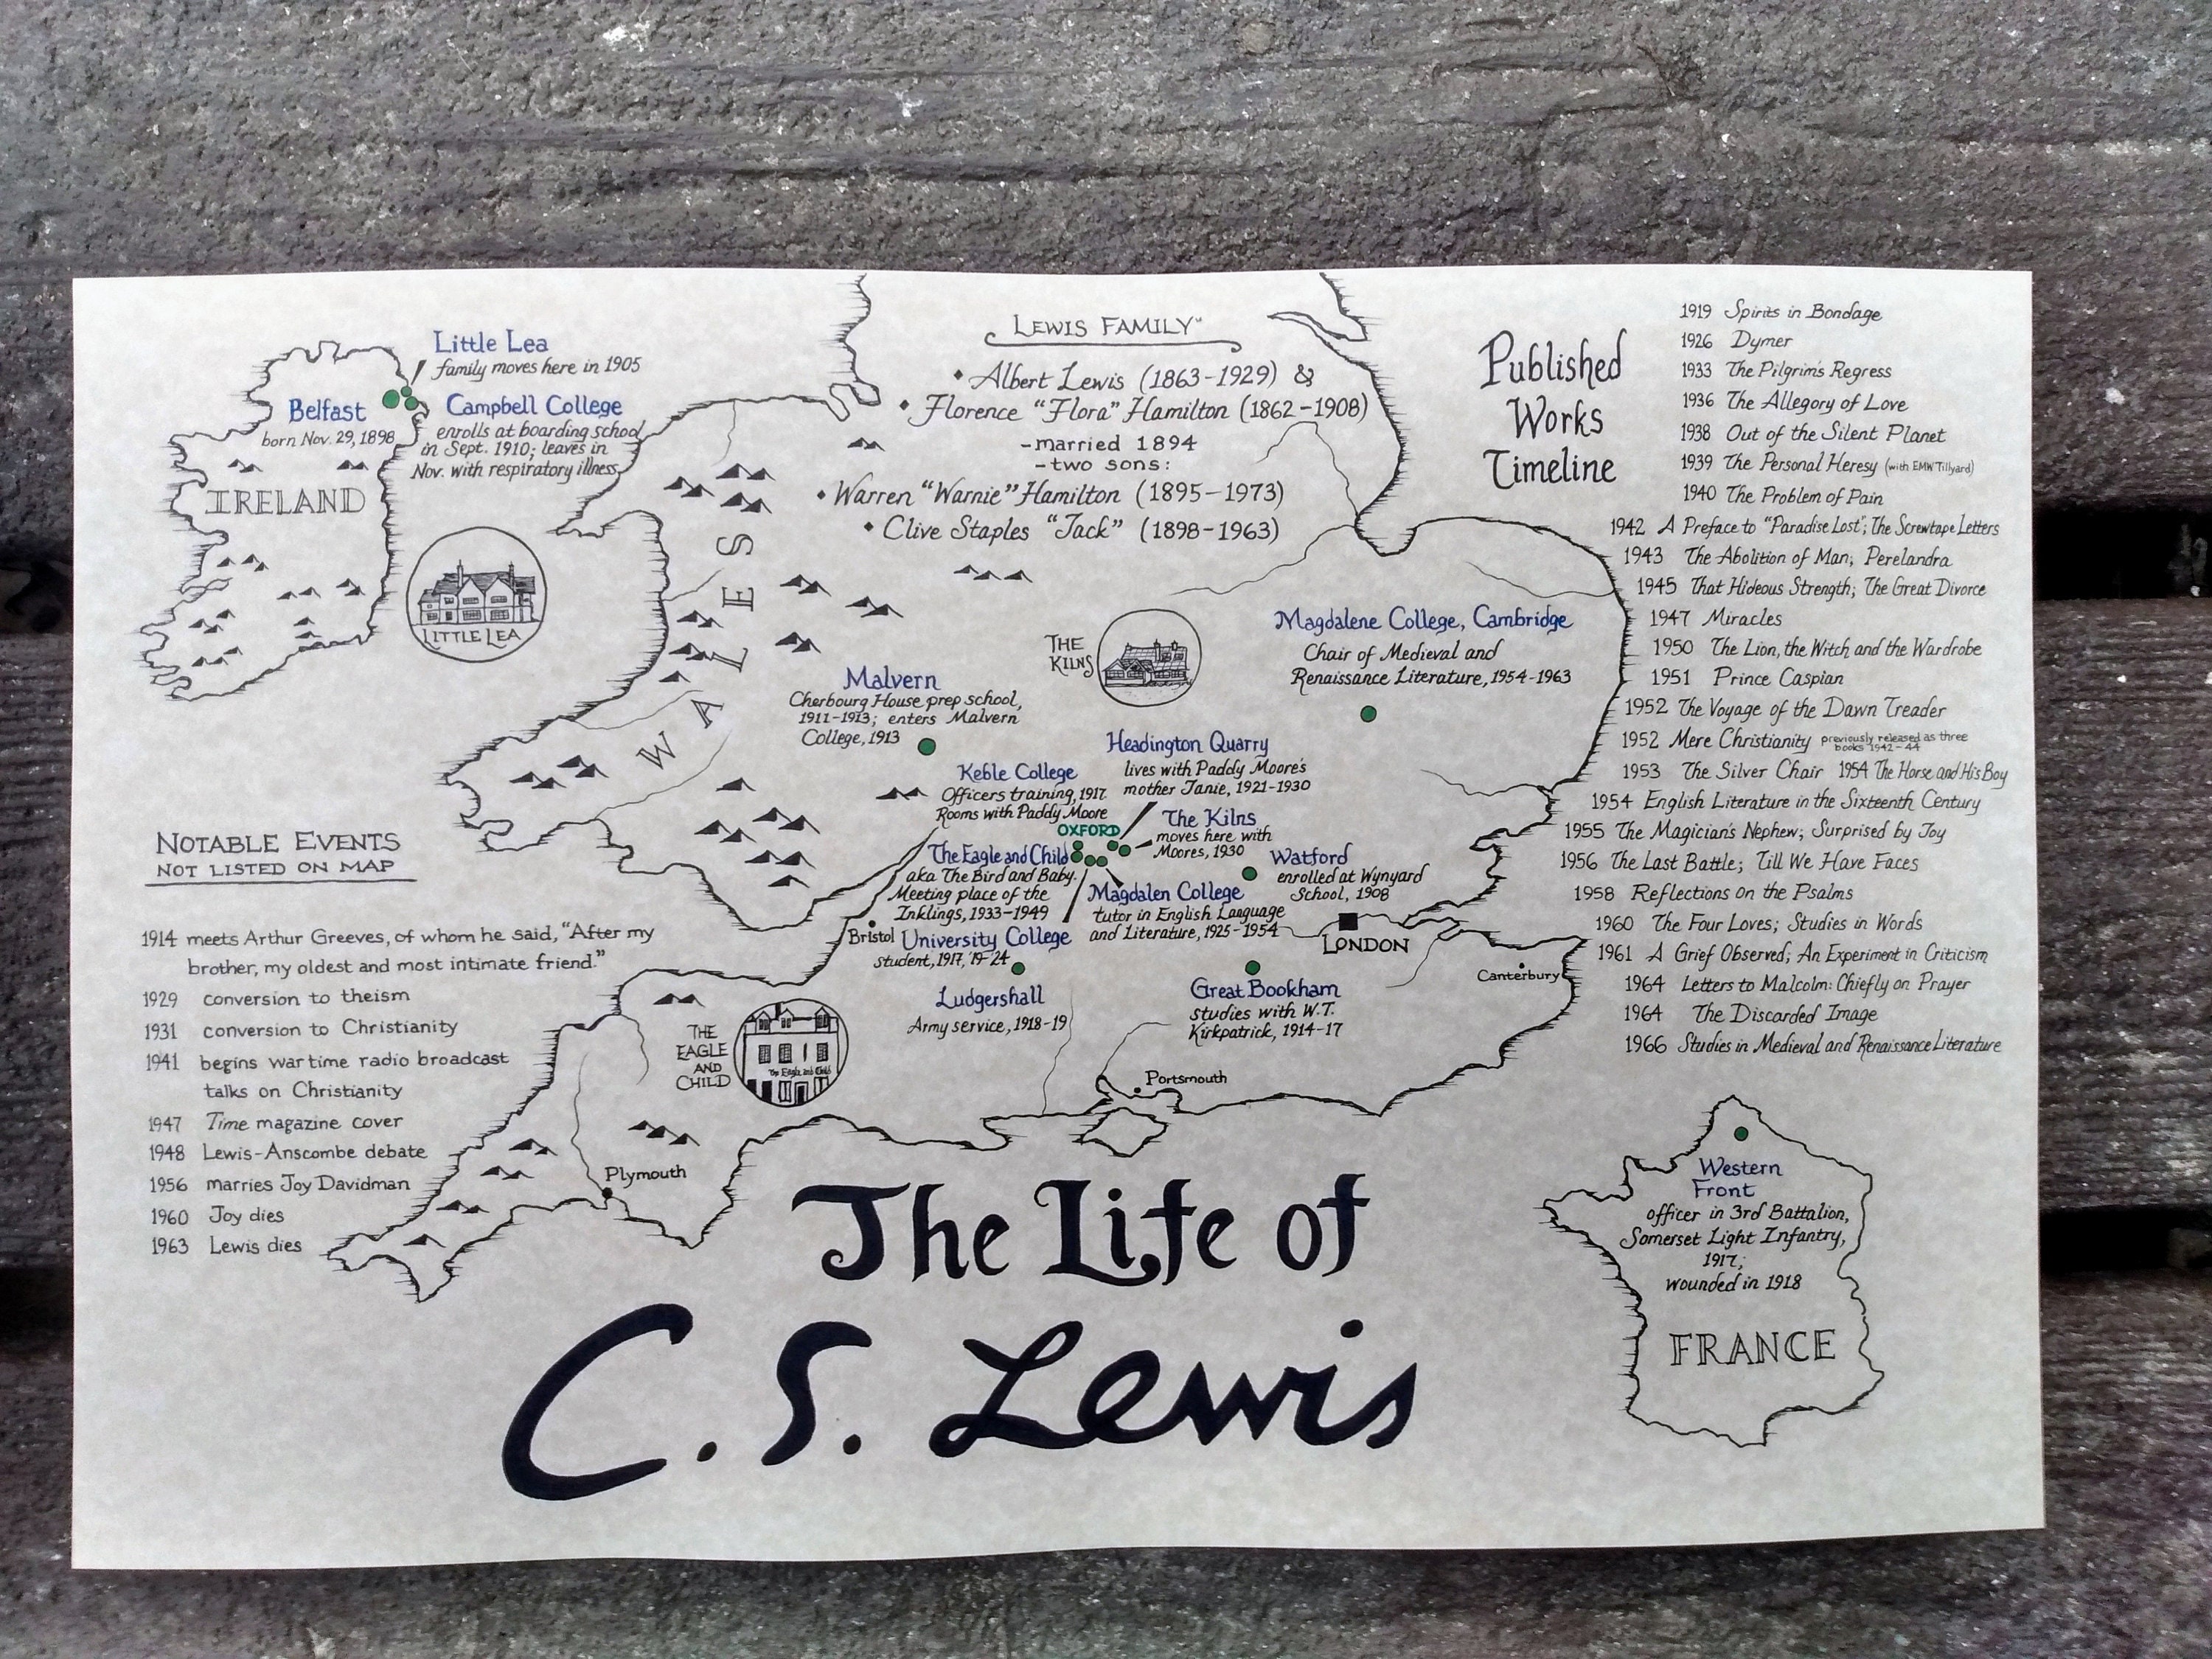 Little Lea
family moves here in 1905
Belfast
born Nov. 29, 1898
Campbell College
enrolls at boarding school
in Sept. 1910; leaves in
Nov. with respiratory illness
IRELAND
LITTLE LEA
WALES
LEWIS FAMILY
Albert Lewis (1863-1929) &
Florence "Flora" Hamilton (1862-1908)
-married 1894
-two sons:
Warren "Warnie" Hamilton (1895-1973)
Clive Staples "Jack" (1898-1963)
THE
KILNS
Magdalene College, Cambridge
Chair of Medieval and
Renaissance Literature, 1954-1963
Malvern
Cherbourg House prep school,
1911-1913; enters Malvern
College, 1913
Headington Quarry
lives with Paddy Moore's
mother Janie, 1921-1930
Keble College
Officers training, 1917
Rooms with Paddy Moore
OXFORD
The Kilns
moves here with
Moores, 1930
The Eagle and Child
aka The Bird and Baby.
Meeting place of the
Inklings, 1933-1949
Watford
enrolled at Wynyard
School, 1908
Magdalen College
tutor in English Language
and Literature, 1925-1954
Bristol
University College
student, 1917, '19-24
LONDON
Canterbury
Ludgershall
Army service, 1918-19
Great Bookham
studies with W.T.
Kirkpatrick, 1914-17
THE
EAGLE
AND
CHILD
The Eagle and Child
Portsmouth
Plymouth
NOTABLE EVENTS
NOT LISTED ON MAP
1914 meets Arthur Greeves, of whom he said, "After my
brother, my oldest and most intimate friend."
1929 conversion to theism
1931 conversion to Christianity
1941 begins wartime radio broadcast
talks on Christianity
1947 Time magazine cover
1948 Lewis-Anscombe debate
1956 marries Joy Davidman
1960 Joy dies
1963 Lewis dies
Published
Works
Timeline
1919 Spirits in Bondage
1926 Dymer
1933 The Pilgrim's Regress
1936 The Allegory of Love
1938 Out of the Silent Planet
1939 The Personal Heresy (with EMW Tillyard)
1940 The Problem of Pain
1942 A Preface to "Paradise Lost"; The Screwtape Letters
1943 The Abolition of Man; Perelandra
1945 That Hideous Strength; The Great Divorce
1947 Miracles
1950 The Lion, the Witch and the Wardrobe
1951 Prince Caspian
1952 The Voyage of the Dawn Treader
1952 Mere Christianity previously released as three
books 1942-44
1953 The Silver Chair 1954 The Horse and His Boy
1954 English Literature in the Sixteenth Century
1955 The Magician's Nephew; Surprised by Joy
1956 The Last Battle; Till We Have Faces
1958 Reflections on the Psalms
1960 The Four Loves; Studies in Words
1961 A Grief Observed; An Experiment in Criticism
1964 Letters to Malcolm: Chiefly on Prayer
1964 The Discarded Image
1966 Studies in Medieval and Renaissance Literature
Western
Front
officer in 3rd Battalion,
Somerset Light Infantry,
1917;
wounded in 1918
FRANCE
The Life of
C. S. Lewis